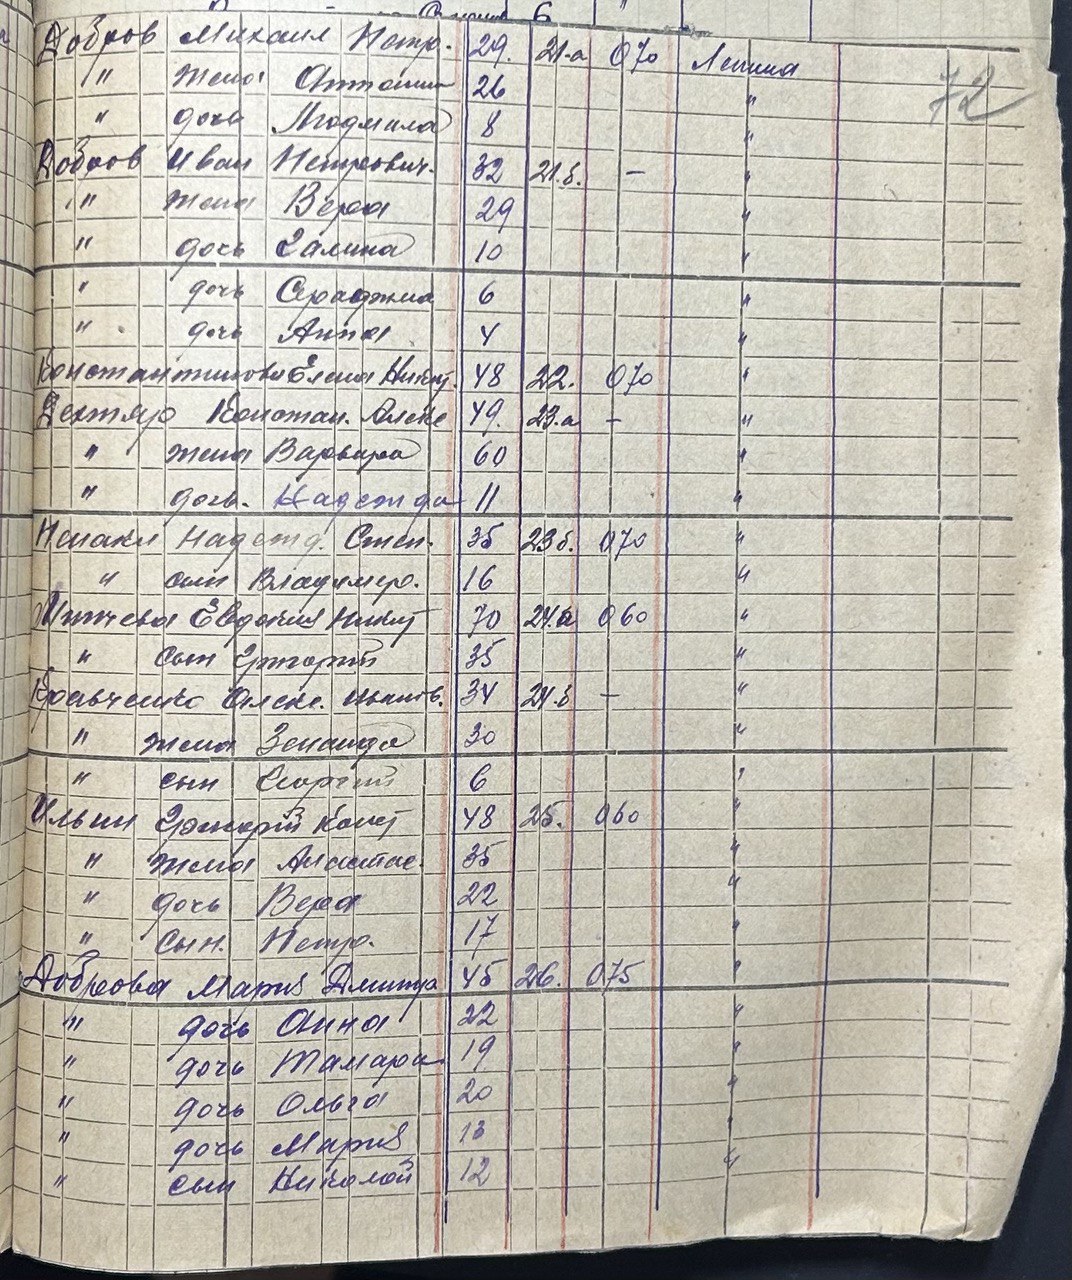 6
72
Добров Михаил Петр. 29. 21-а 070 Ленина
" жена Антонин 26 "
" дочь Людмила 8 "
Добров Иван Петрович. 32 21.б. — "
" жена Вера 29 "
" дочь Галина 10 "
" дочь 6 "
" дочь Анна 4 "
Константинова Елена Никит. 48 22. 070 "
Дехтяр Констан. Алекс 49. 23.а — "
" жена Варвара 60 "
" дочь. Надежда 11 "
Надежд. Степ. 35 23б. 070 "
" сын Владимир. 16 "
Евдокия Никит 70 24.а 060 "
" сын Григорий 35 "
Кравченко Алекс. Иванов. 34 24.б — "
" жена Зенаида 30 "
" сын Георгий 6 "
Ильин Григорій Конст 48 25. 060 "
" жена Анастас. 35 "
" дочь Вера 22 "
" сын. Петр. 17 "
Доброва Мария Дмитр 45 26. 075 "
" дочь Анна 22 "
" дочь Тамара 19 "
" дочь Ольга 20 "
" дочь Мария 13 "
" сын Николай 12 "